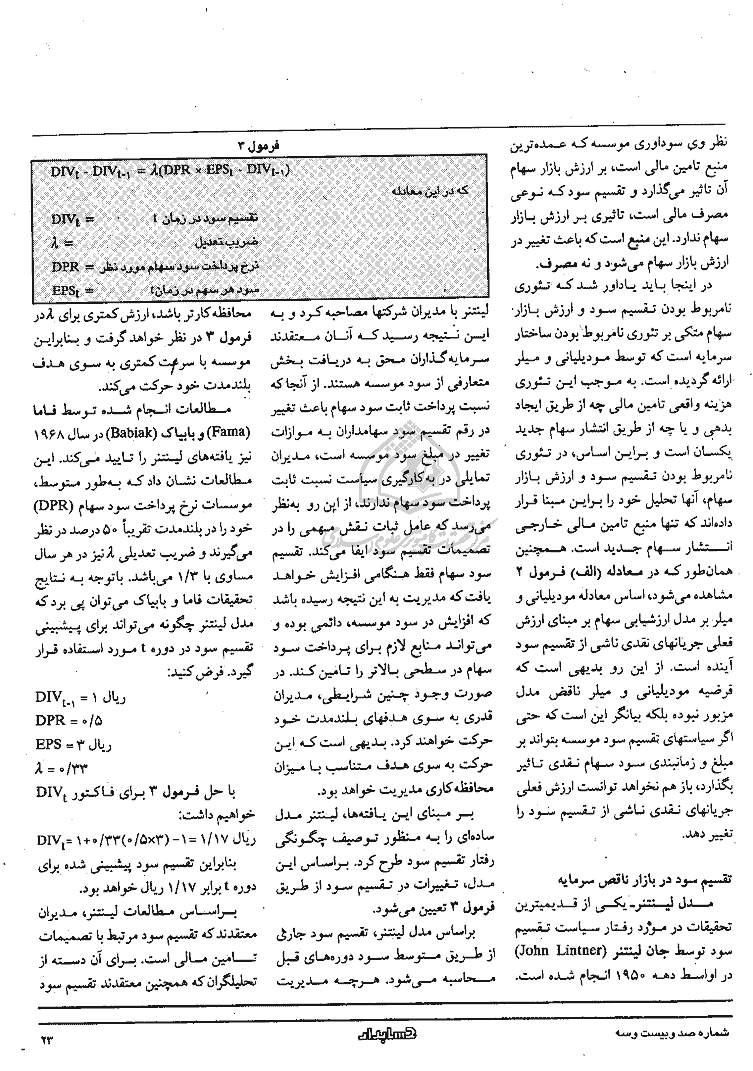 نظر وی سوداوری موسسه که عمده‌ترین
منبع تامین مالی است، بر ارزش بازار سهام
آن تاثیر می‌گذارد و تقسیم سود که نوعی
مصرف مالی است، تاثیری بر ارزش بازار
سهام ندارد. این منبع است که باعث تغییر در
ارزش بازار سهام می‌شود و نه مصرف.
در اینجا باید یاداور شد که تئوری
نامربوط بودن تقسیم سود و ارزش بازار
سهام متکی بر تئوری نامربوط بودن ساختار
سرمایه است که توسط مودیلیانی و میلر
ارائه گردیده است. به موجب این تئوری
هزینه واقعی تامین مالی چه از طریق ایجاد
بدهی و یا چه از طریق انتشار سهام جدید
یکسان است و براین اساس، در تئوری
نامربوط بودن تقسیم سود و ارزش بازار
سهام، آنها تحلیل خود را براین مبنا قرار
داده‌اند که تنها منبع تامین مالی خارجی
انتشار سهام جدید است. همچنین
همان‌طور که در معادله (الف) فرمول ۲
مشاهده می‌شود، اساس معادله مودیلیانی و
میلر بر مدل ارزشیابی سهام بر مبنای ارزش
فعلی جریانهای نقدی ناشی از تقسیم سود
آینده است. از این رو بدیهی است که
فرضیه مودیلیانی و میلر ناقض مدل
مزبور نبوده بلکه بیانگر این است که حتی
اگر سیاستهای تقسیم سود موسسه بتواند بر
مبلغ و زمانبندی سود سهام نقدی تاثیر
بگذارد، باز هم نخواهد توانست ارزش فعلی
جریانهای نقدی ناشی از تقسیم سود را
تغییر دهد.
تقسیم سود در بازار ناقص سرمایه
مدل لینتنر- یکی از قدیمیترین
تحقیقات در مورد رفتار سیاست تقسیم
سود توسط جان لینتنر (John Lintner)
در اواسط دهه ۱۹۵۰ انجام شده است.
فرمول ۳
DIVt - DIVt-۱ = λ(DPR × EPSt - DIVt-۱)
که در این معادله
تقسیم سود در زمان t = DIVt
ضریب تعدیل = λ
نرخ پرداخت سود سهام مورد نظر = DPR
سود هر سهم در زمان t = EPSt
لینتنر با مدیران شرکتها مصاحبه کرد و به
این نتیجه رسید که آنان معتقدند
سرمایه‌گذاران محق به دریافت بخش
متعارفی از سود موسسه هستند. از آنجا که
نسبت پرداخت ثابت سود سهام باعث تغییر
در رقم تقسیم سود سهامداران به موازات
تغییر در مبلغ سود موسسه است، مدیران
تمایلی در به‌کارگیری سیاست نسبت ثابت
پرداخت سود سهام ندارند، از این رو به‌نظر
می‌رسد که عامل ثبات نقش مهمی را در
تصمیمات تقسیم سود ایفا می‌کند. تقسیم
سود سهام فقط هنگامی افزایش خواهد
یافت که مدیریت به این نتیجه رسیده باشد
که افزایش در سود موسسه، دائمی بوده و
می‌تواند منابع لازم برای پرداخت سود
سهام در سطحی بالاتر را تامین کند. در
صورت وجود چنین شرایطی، مدیران
قدری به سوی هدفهای بلندمدت خود
حرکت خواهند کرد. بدیهی است که این
حرکت به سوی هدف متناسب با میزان
محافظه‌کاری مدیریت خواهد بود.
بر مبنای این یافته‌ها، لینتنر مدل
ساده‌ای را به منظور توصیف چگونگی
رفتار تقسیم سود طرح کرد. براساس این
مدل، تغییرات در تقسیم سود از طریق
فرمول ۳ تعیین می‌شود.
براساس مدل لینتنر، تقسیم سود جاری
از طریق متوسط سود دوره‌های قبل
محاسبه می‌شود. هرچه مدیریت
محافظه‌کارتر باشد، ارزش کمتری برای λ در
فرمول ۳ در نظر خواهد گرفت و بنابراین
موسسه با سرعت کمتری به سوی هدف
بلندمدت خود حرکت می‌کند.
مطالعات انجام شده توسط فاما
(Fama) و بابیاک (Babiak) در سال ۱۹۶۸
نیز یافته‌های لینتنر را تایید می‌کند. این
مطالعات نشان داد که به‌طور متوسط،
موسسات نرخ پرداخت سود سهام (DPR)
خود را در بلندمدت تقریباً ۵۰ درصد در نظر
می‌گیرند و ضریب تعدیلی λ نیز در هر سال
مساوی با ۱/۳ می‌باشد. باتوجه به نتایج
تحقیقات فاما و بابیاک می‌توان پی برد که
مدل لینتنر چگونه می‌تواند برای پیشبینی
تقسیم سود در دوره t مورد استفاده قرار
گیرد. فرض کنید:
DIVt-۱ = ۱ ریال
DPR = ۰/۵
EPS = ۳ ریال
λ = ۰/۳۳
با حل فرمول ۳ برای فاکتور DIVt
خواهیم داشت:
DIVt= ۱+۰/۳۳(۰/۵×۳) -۱= ۱/۱۷ ریال
بنابراین تقسیم سود پیشبینی شده برای
دوره t برابر ۱/۱۷ ریال خواهد بود.
براساس مطالعات لینتنر، مدیران
معتقدند که تقسیم سود مرتبط با تصمیمات
تامین مالی است. برای آن دسته از
تحلیلگران که همچنین معتقدند تقسیم سود
شماره صد و بیست و سه
حسابدار
۲۳